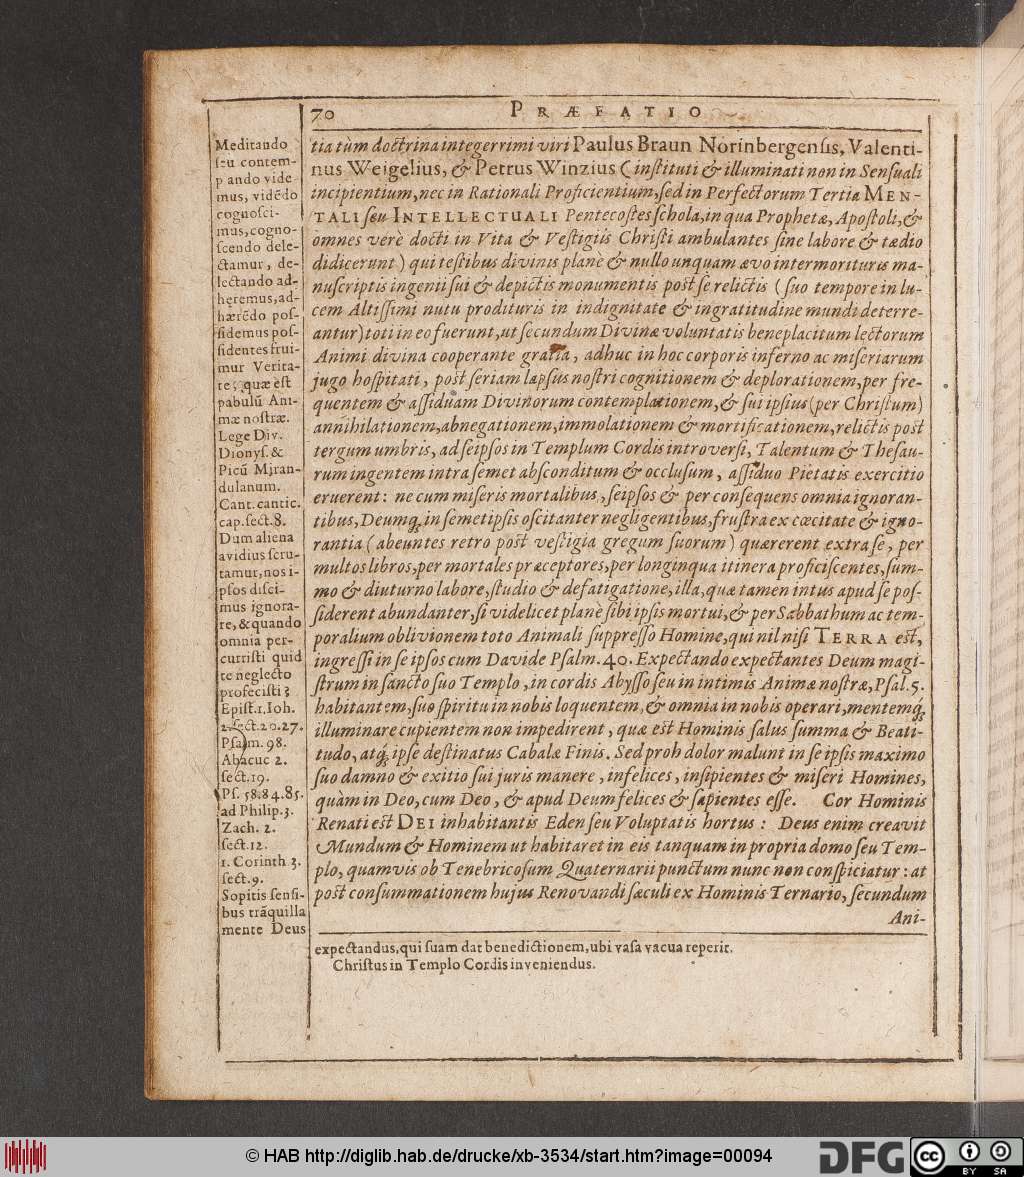 70 PRÆFATIO
Meditando
seu contem-
p ando vide-
mus, vidēdo
cognosci-
mus, cogno-
scendo dele-
ctamur, de-
lectando ad-
heremus, ad-
hærēdo pos-
sidemus pos-
sidentes frui-
mur Verita-
te; quæ est
pabulũ Ani-
mæ nostræ.
Lege Div.
Dionys. &
Picũ Miran-
dulanum.
Cant. cantic.
cap. sect. 8.
Dum aliena
avidius scru-
tamur, nos i-
psos disci-
mus ignora-
re, & quando
omnia per-
curristi quid
te neglecto
profecisti?
Epist. 1. Ioh.
2. sect. 20. 27.
Psalm. 98.
Abacuc 2.
sect. 19.
Ps. 58. 84. 85.
ad Philip. 3.
Zach. 2.
sect. 12.
1. Corinth 3.
sect. 9.
Sopitis sensi-
bus trāquilla
mente Deus
tia tùm doctrina integerrimi viri Paulus Braun Norinbergensis, Valenti-
nus Weigelius, & Petrus Winzius (instituti & illuminati non in Sensuali
incipientium, nec in Rationali Proficientium, sed in Perfectorum Tertia MEN-
TALI seu INTELLECTUALI Pentecostes schola, in qua Prophetæ, Apostoli, &
omnes verè docti in Vita & Vestigiis Christi ambulantes sine labore & tædio
didicerunt) qui testibus divinis planè & nullo unquam ævo intermorituris ma-
nuscriptis ingenii sui & depictis monumentis post se relictis (suo tempore in lu-
cem Altissimi nutu prodituris in indignitate & ingratitudine mundi deterre-
antur) toti in eo fuerunt, ut secundum Divinæ voluntatis beneplacitum lectorum
Animi divina cooperante gratia, adhuc in hoc corporis inferno ac miseriarum
jugo hospitati, post seriam lapsus nostri cognitionem & deplorationem, per fre-
quentem & assiduam Divinorum contemplationem, & sui ipsius (per Christum)
annihilationem, abnegationem, immolationem & mortificationem, relictis post
tergum umbris, ad seipsos in Templum Cordis introversi, Talentum & Thesau-
rum ingentem intra semet absconditum & occlusum, assiduo Pietatis exercitio
eruerent: ne cum miseris mortalibus, seipsos & per consequens omnia ignoran-
tibus, Deumq́; in semetipsis oscitanter negligentibus, frustra ex cæcitate & igno-
rantia (abeuntes retro post vestigia gregum suorum) quærerent extra se, per
multos libros, per mortales præceptores, per longinqua itinera proficiscentes, sum-
mo & diuturno labore, studio & defatigatione, illa, quæ tamen intus apud se pos-
siderent abundanter, si videlicet planè sibi ipsis mortui, & per Sabbathum ac tem-
poralium oblivionem toto Animali suppresso Homine, qui nil nisi TERRA est,
ingressi in se ipsos cum Davide Psalm. 40. Expectando expectantes Deum magi-
strum in sancto suo Templo, in cordis Abysso seu in intimis Animæ nostræ, Psal. 5.
habitantem, suo spiritu in nobis loquentem, & omnia in nobis operari, mentemq́;
illuminare cupientem non impedirent, quæ est Hominis salus summa & Beati-
tudo, atq́; ipse destinatus Cabalæ Finis. Sed proh dolor malunt in se ipsis maximo
suo damno & exitio sui juris manere, infelices, insipientes & miseri Homines,
quàm in Deo, cum Deo, & apud Deum felices & sapientes esse. Cor Hominis
Renati est DEI inhabitantis Eden seu Voluptatis hortus: Deus enim creavit
Mundum & Hominem ut habitaret in eis tanquam in propria domo seu Tem-
plo, quamvis ob Tenebricosum Quaternarii punctum nunc non conspiciatur: at
post consummationem hujus Renovandi sæculi ex Hominis Ternario, secundum
Ani-
expectandus, qui suam dat benedictionem, ubi vasa vacua reperit.
Christus in Templo Cordis inveniendus.
© HAB http://diglib.hab.de/drucke/xb-3534/start.htm?image=00094
DFG
cc BY SA